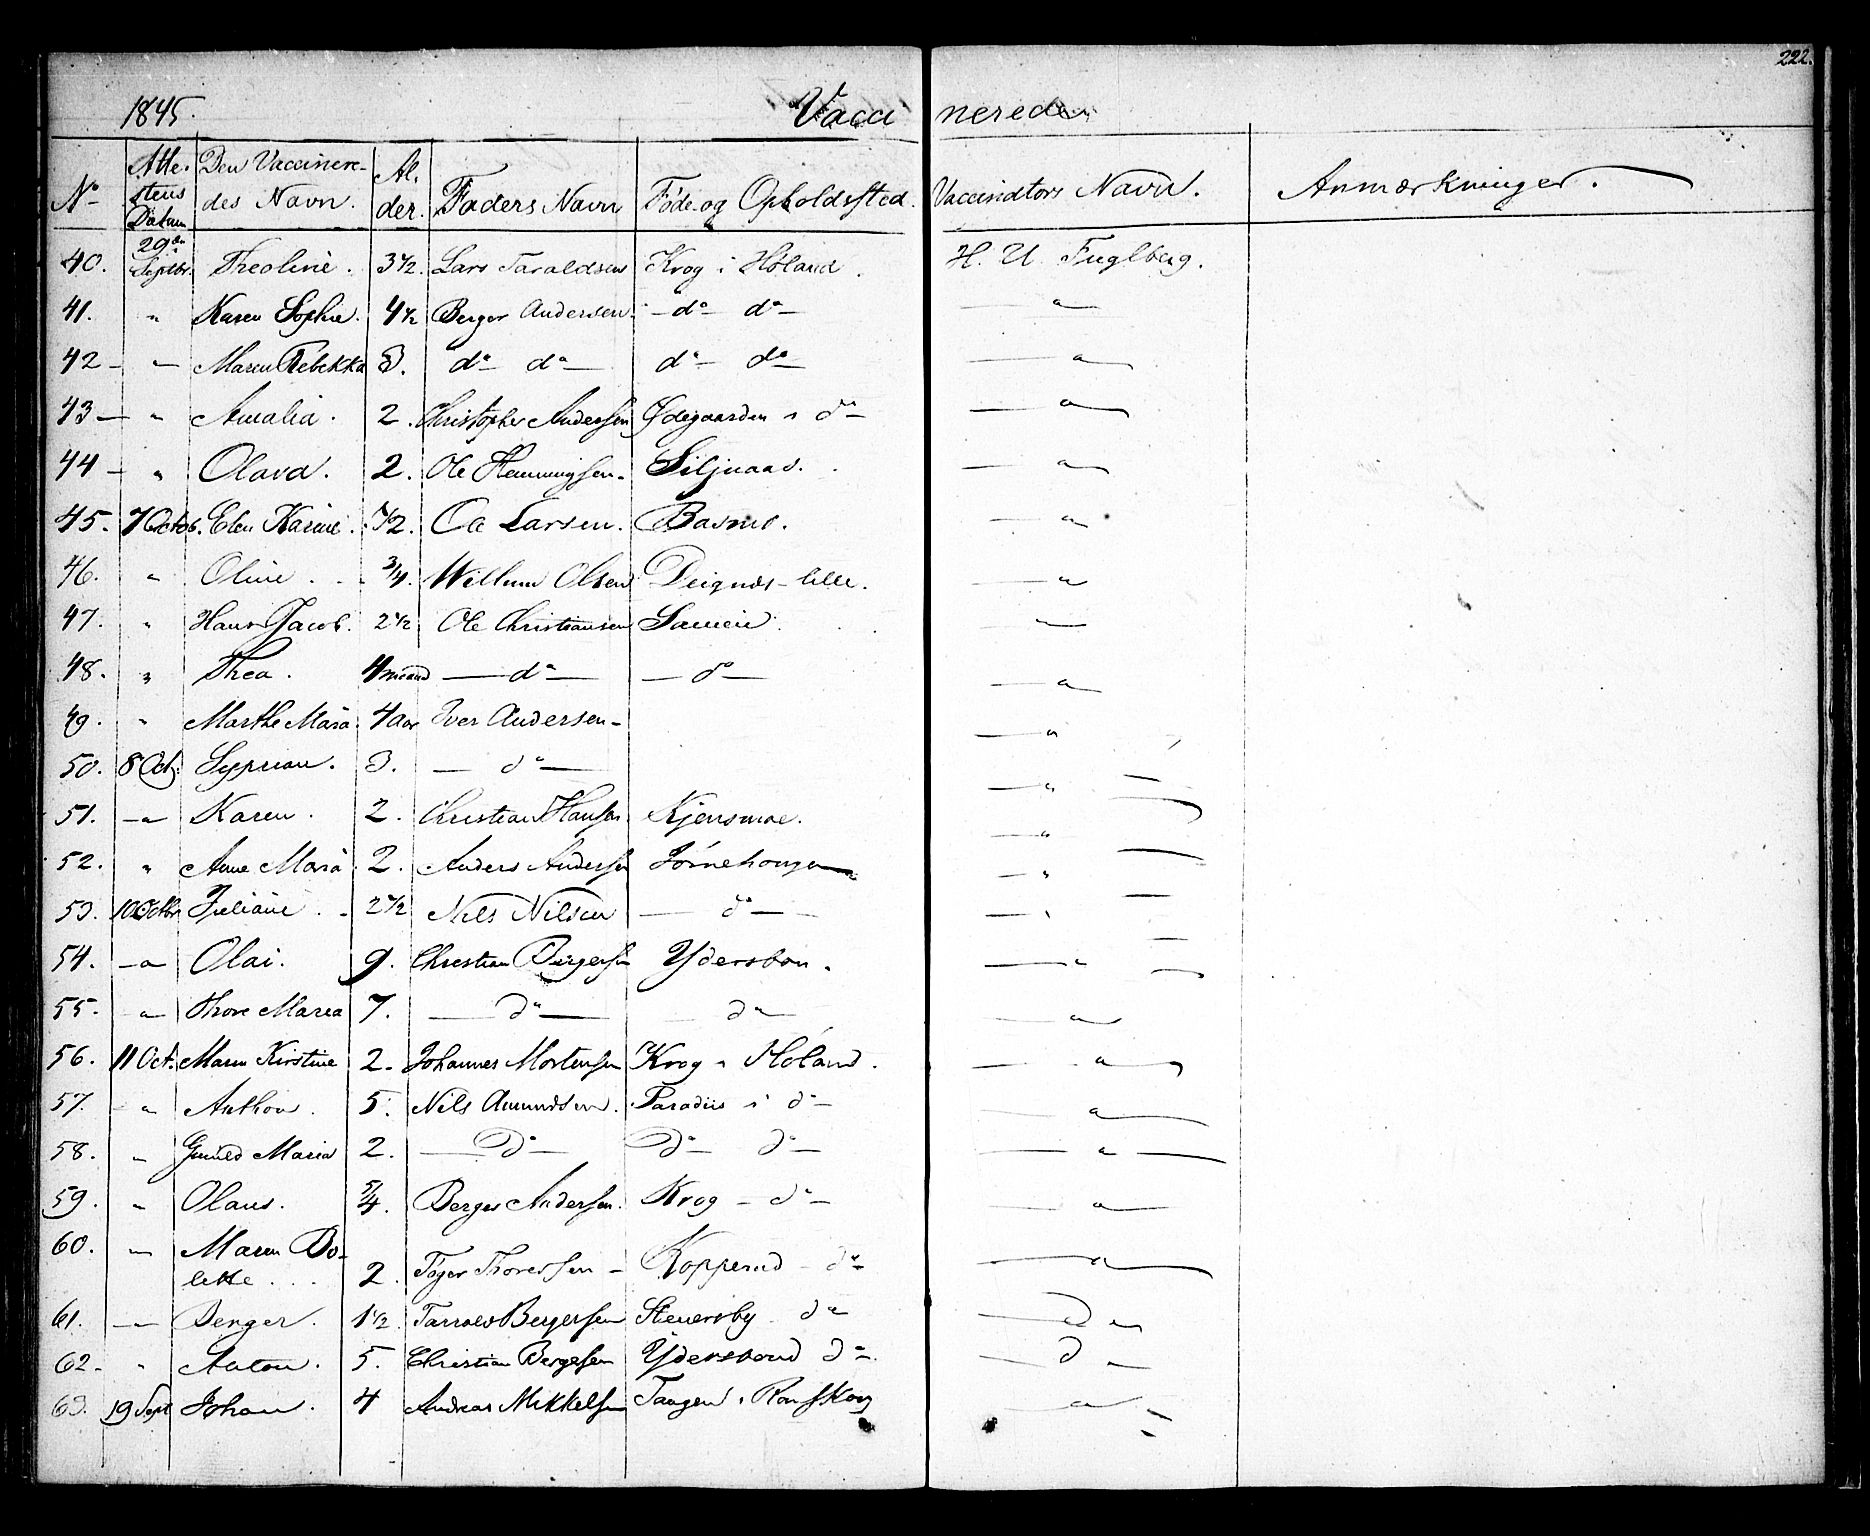 222.
1845. Vacci nerede
No Atte-stens Datum Den Vaccinere-des Navn. Al-der. Faders Navn Føde og Opholdssted. Vaccinators Navn. Anmærkninger.
40. 29de Septbr. Theoline. 3 1/2. Lars Taraldsen Krog i Høland. H. U. Fuglberg.
41. " Karen Sophie. 4 1/2 Berger Andersen. - do - do - — " —
42 - " Maren Rebekka 3. do - do - do - do - — " —
43 - " Amalia. 2. Christopher Andersen Ødegaarden i do - — " —
44 - " Olava. 2. Ole Hemmingsen. Siljuaas. — " —
45. 7 Octob. Elen Karine. 1/2. Ole Larsen. Basmo. — " —
46. " Oline. 3/4. Willum Olsen - lille. — " —
47. " Hans Jacob. 2 1/2 Ole Christiansen — " —
48. " Thea. 4 maand — do — — do — — " —
49. " Marthe Maria. 4 aar Iver Andersen - — " —
50. 8 Oct. Syprian. 3. — do — — " —
51. - " Karen. 2. Christian Hansen Kjensmoe. — " —
52. " Anne Maria. 2. Anders Andersen — " —
53. 10 Octbr Juliane. 2 1/2 Nils Nilsen — do — — " —
54. - " Olai. 9. Christian Bergersen Ydersbon. — " —
55. - " Thore Maria 7. — do — do — — " —
56. 11 Oct. Maren Kirstine 2. Johannes Mortensen Krog i Høland. — " —
57. - " Anthon. 5. Nils Amundsen. Paradiis i do - — " —
58. " Gunild Maria 2. — do — do - do - — " —
59. " Olaus. 5/4. Berger Andersen. Krog - do - — " —
60. " Maren Bo-
lette. 2. Thoresen - Kopperud - do - — " —
61. - " Berger. 1 1/2. Bergersen Stenersby do — do —
62 - " Anton. 5. Christian Bergesen Ydersbond do -. — do —
63. 19 Sept Johan. 4 Andreas Mikkelsen Tangen i — " —